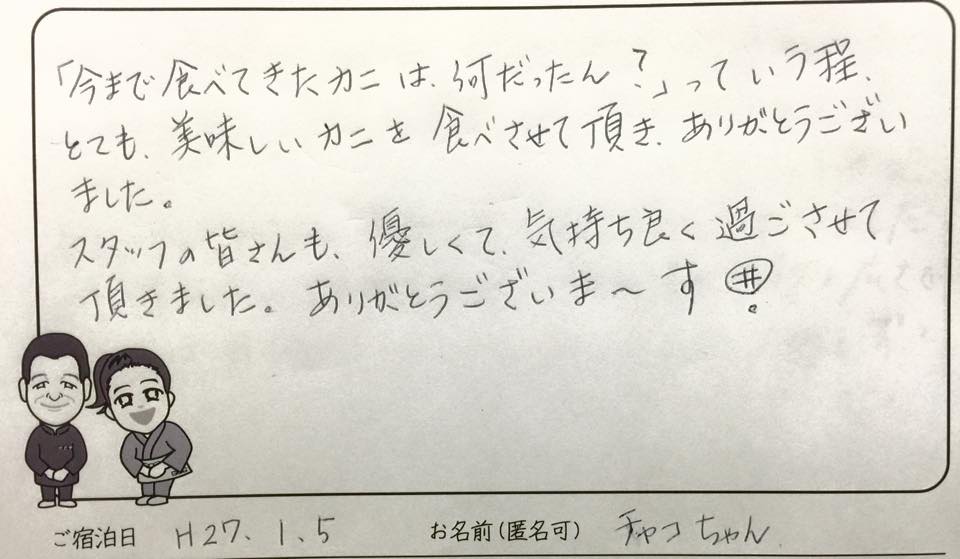 「今まで食べてきたカニは、何だったん？」っていう程、
とても、美味しいカニを食べさせて頂き、ありがとうござい
ました。
スタッフの皆さんも、優しくて、気持ち良く過ごさせて
頂きました。ありがとうございま～す
ご宿泊日 H27.1.5 お名前(匿名可) チャコちゃん